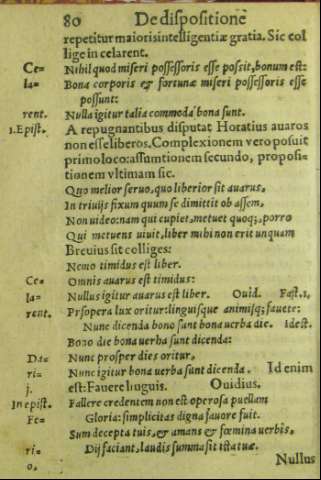 80 De dispositione
repetitur maioris intelligentiæ gratia. Sic col
lige in celarent.
Ce= Nihil quod miseri possessoris esse possit, bonum est:
la= Bona corporis & fortunæ miseri possessoris esse
possunt:
rent. Nulla igitur talia commoda bona sunt.
1. Epist. A repugnantibus disputat Horatius auaros
non esse liberos. Complexionem vero posuit
primo loco: assumtionem secundo, proposi=
tionem vltimam sic.
Quo melior seruo, quo liberior sit auarus,
In triuijs fixum quum se dimittit ob assem,
Non uideo: nam qui cupiet, metuet quoq;, porro
Qui metuens uiuit, liber mihi non erit unquam
Breuius sit colliges:
Nemo timidus est liber.
Ce= Omnis auarus est timidus:
la= Nullus igitur auarus est liber. Ouid. Fast. 1,
rent. Prospera lux oritur: linguisque animisq; fauete:
Nunc dicenda bono sunt bona uerba die. Idest.
Bono die bona uerba sunt dicenda:
Da= Nunc prosper dies oritur,
ri= Nunc igitur bona uerba sunt dicenda. Id enim
j. est: Fauere linguis. Ouidius.
In epist. Fallere credentem non est operosa puellam
Fe= Gloria: simplicitas digna fauore fuit.
Sum decepta tuis, & amans & fœmina uerbis,
ri= Dij faciant, laudis summa sit ista tuæ.
o,
Nullus